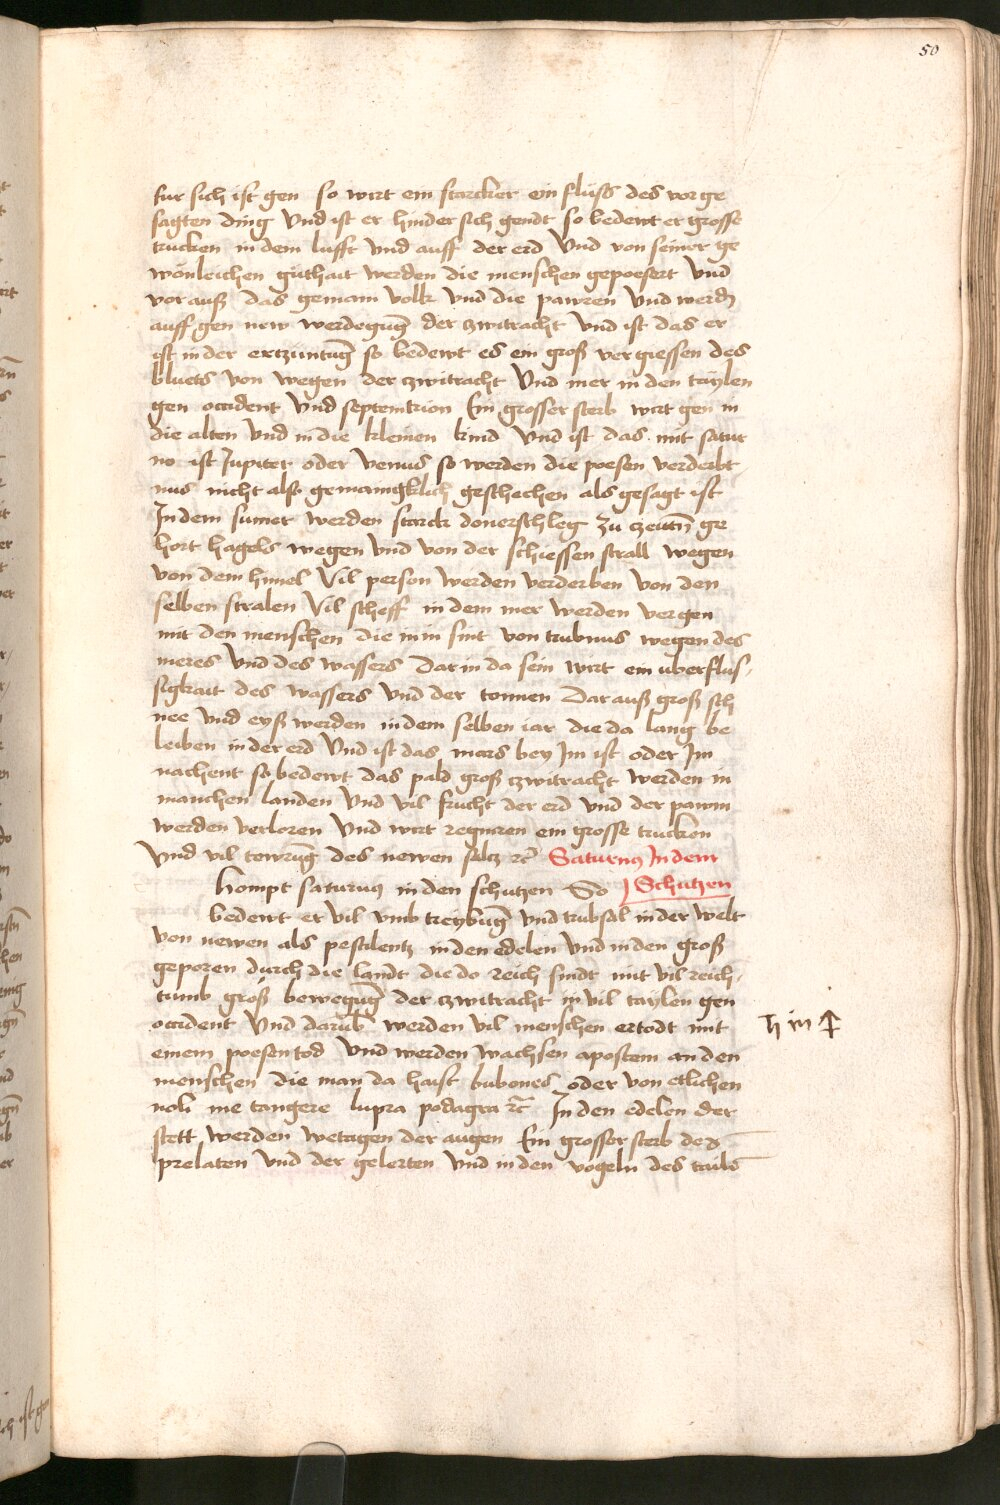 50
fur sich ist gen so wirt ein starcker ein fluss des vor ge
sagten ding Vnd ist er hinder sich gendt so bedewt er grosse
trucken in dem lufft vnd auff der erd Vnd von seiner ge
wonleichen guthait werden die menschen gepoesert Vnd
vor auß das gemain volk vnd die pawren vnd werdn
auff gen new werdegug̃ der zwitracht vnd ist das er
ist in der ertzuntug̃ so bedewt es ein groß vergiessen des
bluets von wegen der zwitracht Vnd mer in den taylen
gen occident vnd septemtrion Ein grosser sterb wirt gen in
die alten vnd in die kleinen kind vnd ist das mit satur
no ist Jupiter oder venus so werden die poesen verderbt
nus nicht also gemaingklich geschechen als gesagt ist
In dem sumer werden starck donerschleg zu czeittñ ge
hort hagels wegen vnd von der schiessen strall wegen
von dem himel Vil person werden verderben von den
selben stralen Vil scheff in dem mer werden vergen
mit den menschen die in in sint von trubnus wegen des
meres Vnd des wassers Dar in da sein wirt ein uberflus
sigkait des wassers vnd der tonnen Dar auß groß sch
nee vnd eyß werden in dem selben iar die da lang be
leiben in der erd Vnd ist das mars bey Im ist oder Im
nachent so bedewt das pald groß zwitracht werden in
manchen landen Vnd vil frucht der erd vnd der pawm
werden verloren Vnd wirt regniren ein grosse trucken
Vnd vil tewrug̃ des newen saltz rc̃ Saturnus In dem
Kompt saturnus in den schutzen So Schutzen
bedewt er vil vmb treybug̃ vnd trubsal in der welt
von newen als pestilentz in den edelen vnd in den groß
geporen durch die landt die do reich sindt mit vil reich
tumb groß bewegug̃ der zwitracht in vil taylen gen
occident Vnd darub̃ werden vil menschen ertodt mit
einem poesen tod Vnd werden wachsen apostem an den
menschen die man da haist bubones oder von etlichen
noli me tangere lupra podagra rc̃ In den edelen der
stett werden wetagen der augen Ein grosser sterb der
prelaten vnd der gelerten vnd in den vogeln des tails
♄ in ♐